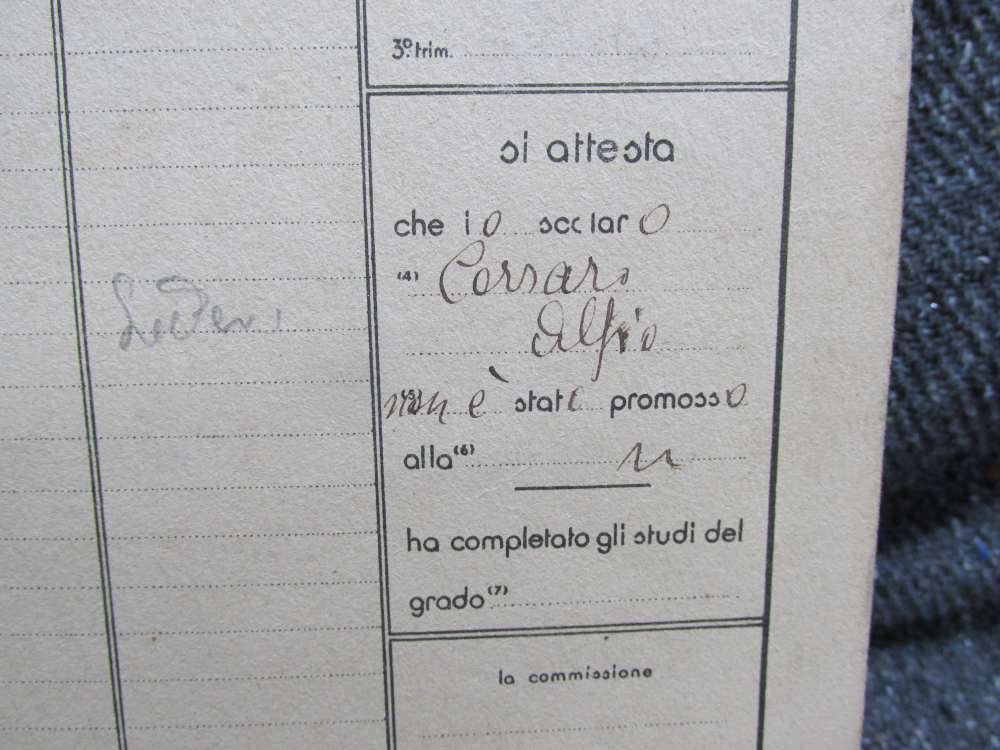 3º trim.
si attesta
che lo scolaro
(4) Corsaro
Alfio
(5) non è stato promosso
alla (6) n
ha completato gli studi del
grado (7)
la commissione